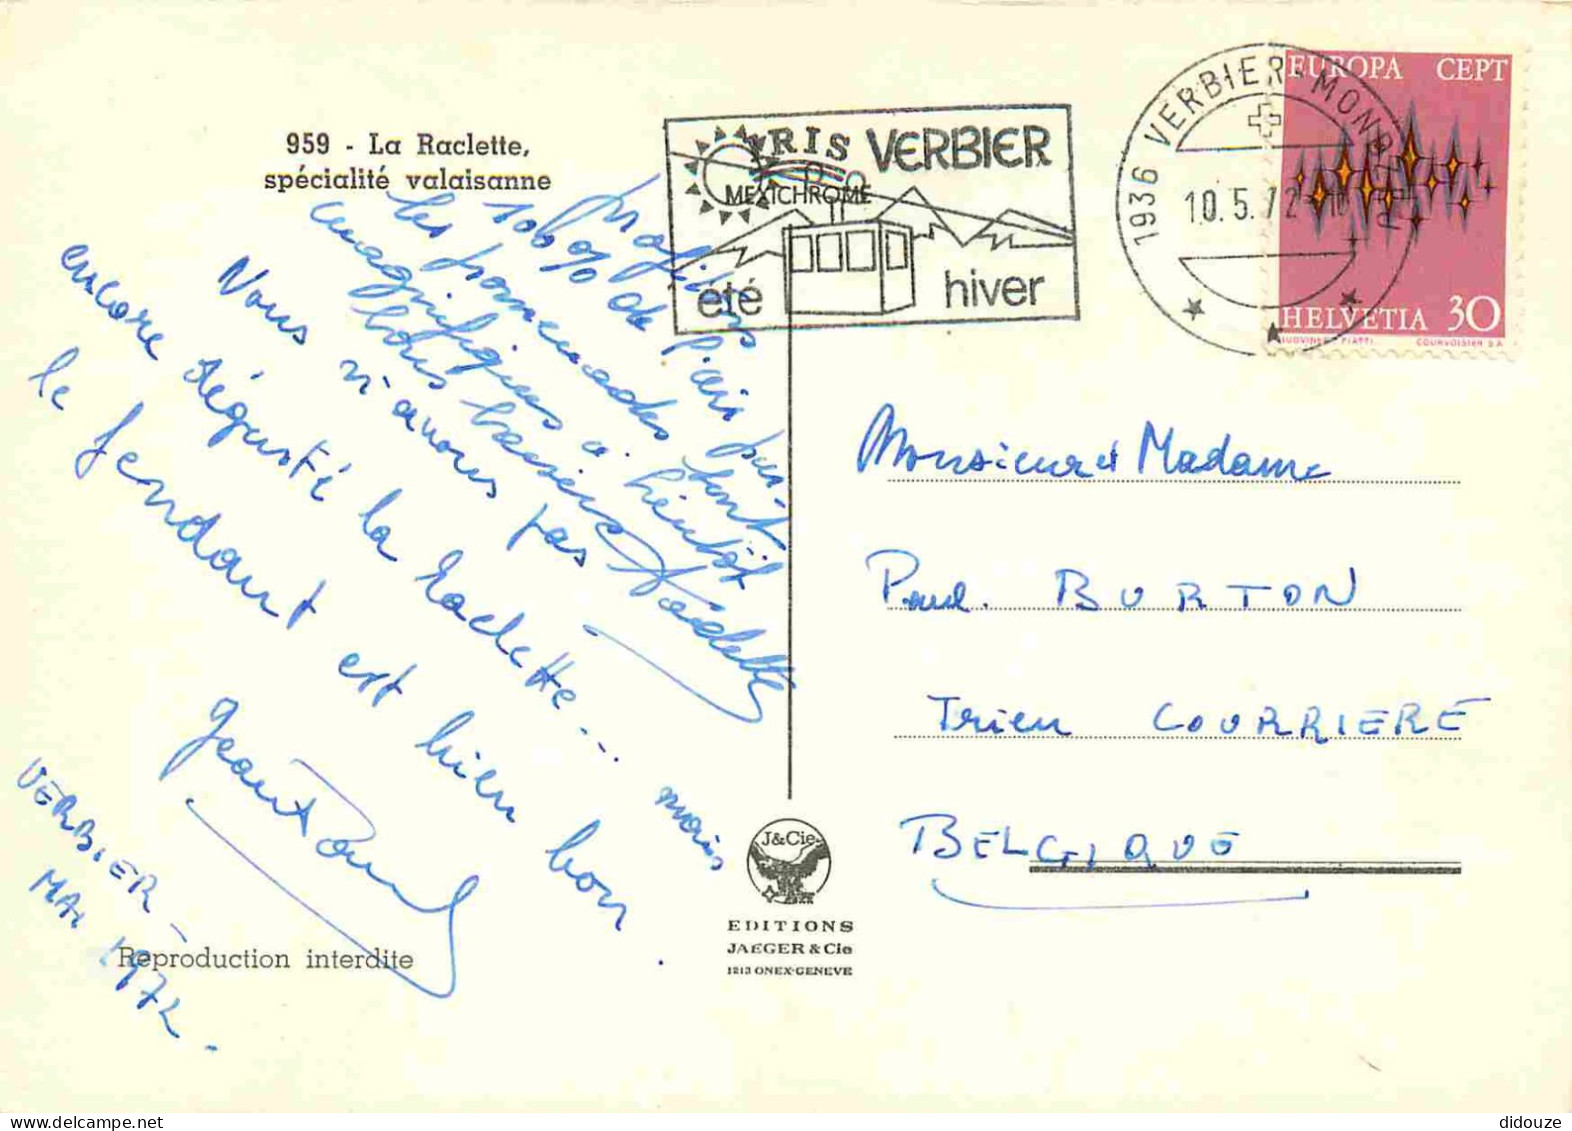 959 - La Raclette,
spécialité valaisanne
IRIS
MEXICHROME
VERBIER
été
hiver
1936 VERBIER-MONDZEU
10.5.72-18
EUROPA CEPT
HELVETIA 30
COURVOISIER S.A.
Profitons
100% de l'air pur.
les promenades sont
magnifiques à bientôt
bons baisers
Nous n'avons pas
encore dégusté la Raclette... mais
le fendant est bien bon.
Jean Paul
VERBIER -
MAI 1972.
Monsieur et Madame
Paul. BURTON
Trieu COURRIERE
BELGIQUE
J&Cie
EDITIONS
JAEGER & Cie
1213 ONEX-GENEVE
Reproduction interdite
didouze